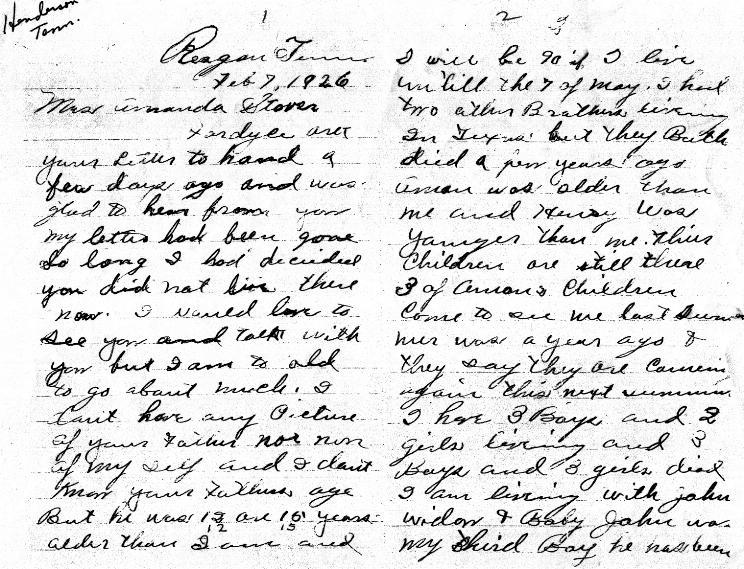 Henderson
Tenn.
1
Reagan Tenn
Feb 7, 1926
Mrs Amanda Stover
Fordyce ark
yours Letter to hand a
few days ago and was
glad to hear from you
my letter had been gone
so long I had decided
you did not live there
now. I would love to
see you and talk with
you but I am to old
to go about much. I
Cant have any Picture
of your Father nor non
of my self and I dant
know your Fathers age
But he was 12 are 15 years
12 15
alder than I am and
2
I will be 90 if I live
untill the 7 of may. I had
two other Brothers living
In Texas but they Both
died a few years ago
aman was older than
me and Henry was
younger than me. thir
Children are still there
3 of amans Children
Come to see me last sum
mer was a year ago &
they say they are Comein
again this next summer
I have 3 Boys and 2
girls living and 3
Boys and 3 girls died
I am living with john
widow & Baby John was
my third Boy he has been